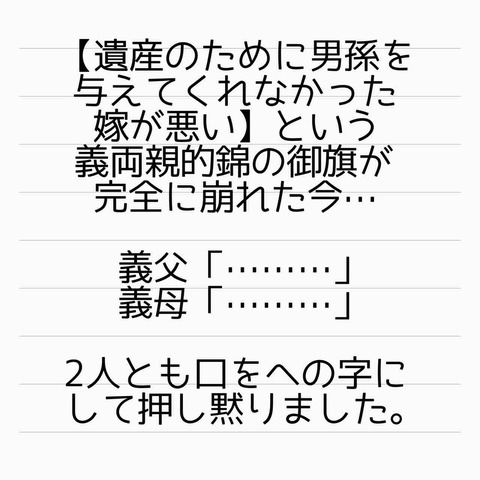 【遺産のために男孫を
与えてくれなかった
嫁が悪い】という
義両親的錦の御旗が
完全に崩れた今…
義父「………」
義母「………」
2人とも口をへの字に
して押し黙りました。